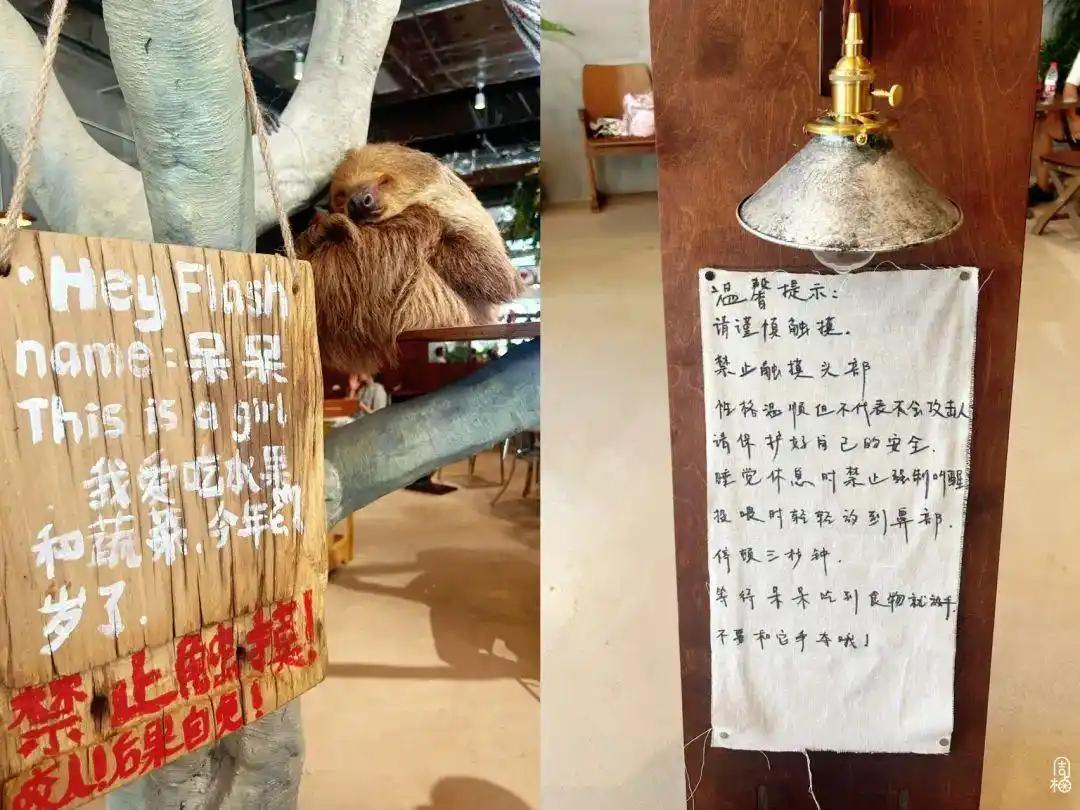 ·Hey Flash
name:呆呆
This is a girl
我爱吃水果
和蔬菜.今年
岁了.
禁止触摸!
咬人!后果自负!
温馨提示:
请谨慎触摸.
禁止触摸头部
性格温顺但不代表不会攻击人
请保护好自己的安全.
睡觉休息时禁止强制叫醒
投喂时轻轻放到鼻部.
停顿三秒钟.
等待呆呆吃到食物就放手.
不要和它手牵哦!
周楠